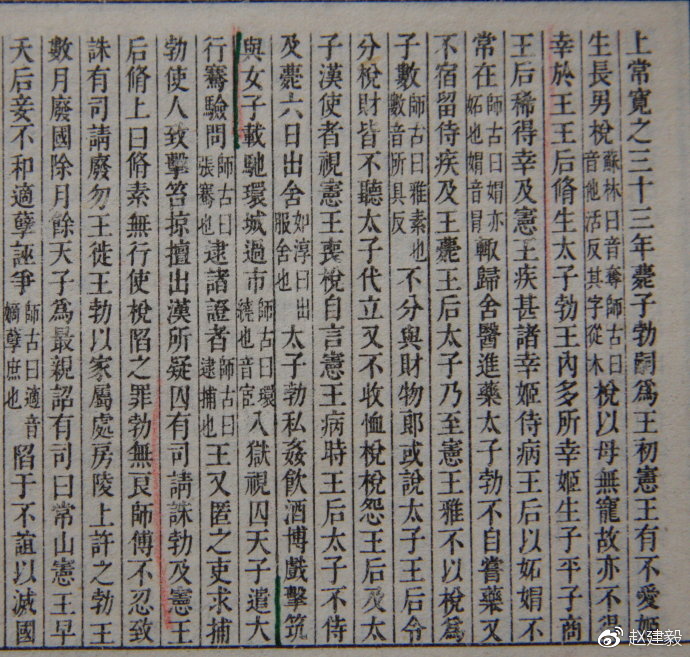 上常寬之三十三年薨子勃嗣爲王初憲王有不愛姬
生長男梲蘇林曰音奪師古曰音他活反其字從木梲以母無寵故亦不得
幸於王王后脩生太子勃王內多所幸姬生子平子商
王后稀得幸及憲王疾甚諸幸姬侍病王后以妬媢不
常在師古曰媢亦妬也媢音冒輒歸舍醫進藥太子勃不自嘗藥又
不宿留侍疾及王薨王后太子乃至憲王雅不以梲爲
子數師古曰雅素也數音所具反不分與財物郎或說太子王后令
分梲財皆不聽太子代立又不收恤梲梲怨王后及太
子漢使者視憲王喪梲自言憲王病時王后太子不侍
及薨六日出舍如淳曰出服舍也太子勃私姦飲酒博戲擊筑
與女子載馳環城過市師古曰環繞也音宦入獄視囚天子遣大
行騫驗問師古曰張騫也逮諸證者師古曰逮捕也王又匿之吏求捕
勃使人致擊笞掠擅出漢所疑囚有司請誅勃及憲王
后脩上曰脩素無行使梲陷之罪勃無良師傅不忍致
誅有司請廢勿王徙王勃以家屬處房陵上許之勃王
數月廢國除月餘天子爲最親詔有司曰常山憲王早
天后妾不和適孽誣爭師古曰適音嫡孽庶也陷于不誼以滅國
赵建毅